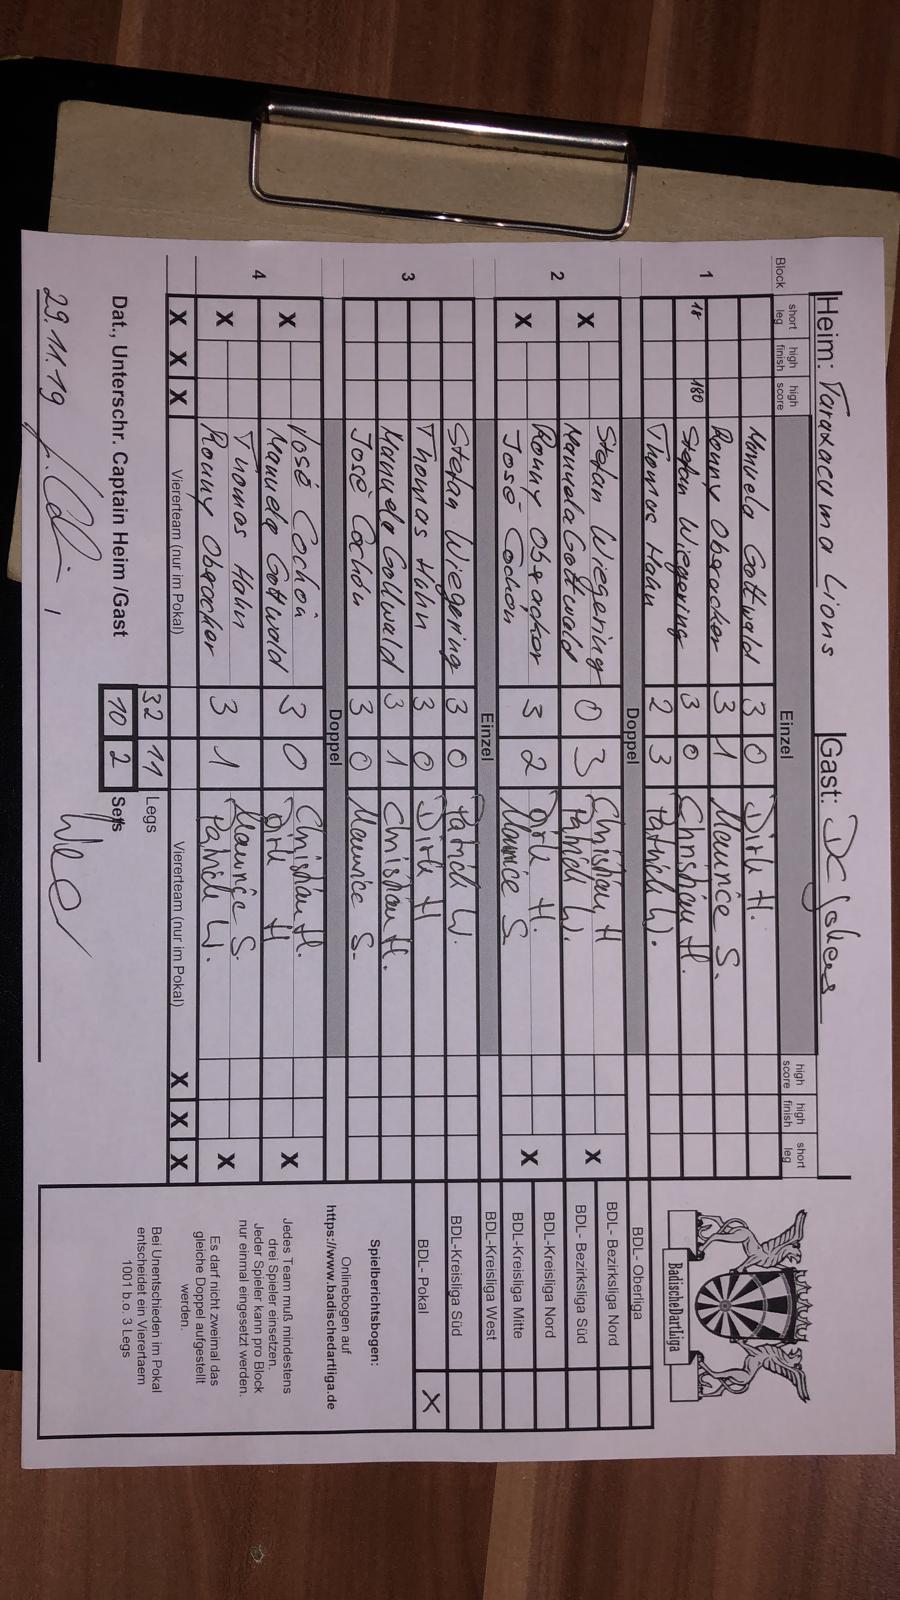 Heim: Taraxacuma Lions Gast: DC Jokers
Block short leg high finish high score Einzel high score high finish short leg
1 Manuela Gottwald 3 0 Dirk H.
Ronny Obgacher 3 1 Maurice S.
18 180 Stefan Wiegering 3 0 Christian H.
Thomas Hahn 2 3 Patrick W.
Doppel
2 X Stefan Wiegering 0 3 Christian H X
Manuela Gottwald Patrick W.
X Ronny Obgacher 3 2 Dirk H. X
José Cochón Maurice S
Einzel
3 Stefan Wiegering 3 0 Patrick W.
Thomas Hahn 3 0 Dirk H
Manuela Gottwald 3 1 Christian H.
José Cochón 3 0 Maurice S.
Doppel
4 X José Cochón 3 0 Christian H. X
Manuela Gottwald Dirk H
X Thomas Hahn 3 1 Maurice S. X
Ronny Obgacher Patrick W.
X X X Viererteam (nur im Pokal) Viererteam (nur im Pokal) X X X
32 11 Legs
Dat., Unterschr. Captain Heim /Gast 10 2 Sets
29.11.19
BadischeDartLiga
BDL- Oberliga
BDL- Bezirksliga Nord
BDL- Bezirksliga Süd
BDL-Kreisliga Nord
BDL-Kreisliga Mitte
BDL-Kreisliga West
BDL-Kreisliga Süd
BDL- Pokal X
Spielberichtsbogen:
Onlinebogen auf
https://www.badischedartliga.de
Jedes Team muß mindestens
drei Spieler einsetzen.
Jeder Spieler kann pro Block
nur einmal eingesetzt werden.
Es darf nicht zweimal das
gleiche Doppel aufgestellt
werden.
Bei Unentschieden im Pokal
entscheidet ein Vierertaem
1001 b.o. 3 Legs